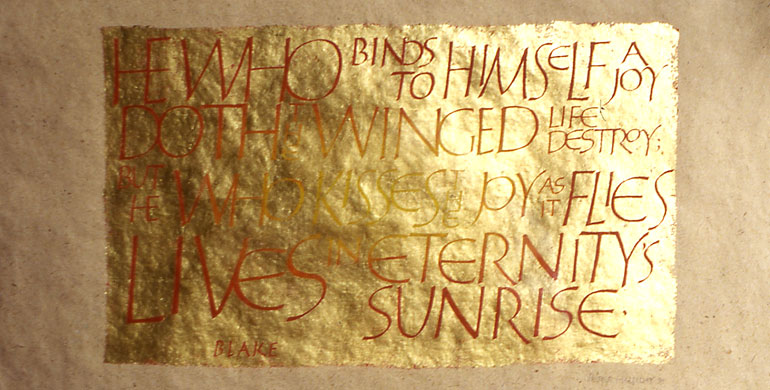 HE WHO BINDS TO HIMSELF A JOY
DOTH THE WINGED LIFE DESTROY;
BUT HE WHO KISSES THE JOY AS IT FLIES
LIVES IN ETERNITY'S
SUNRISE.
BLAKE